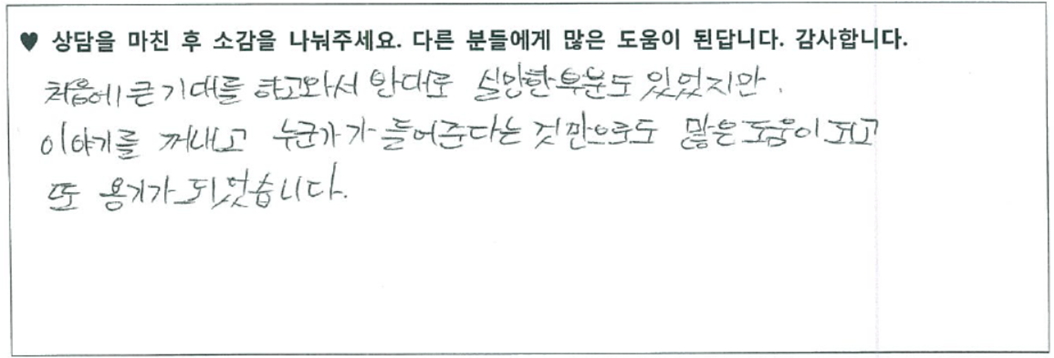 ♥ 상담을 마친 후 소감을 나눠주세요. 다른 분들에게 많은 도움이 된답니다. 감사합니다.
처음에 큰 기대를 하고와서 반대로 실망한부분도 있었지만.
이야기를 꺼내고 누군가가 들어준다는 것만으로도 많은도움이 되고
또 용기가 되었습니다.